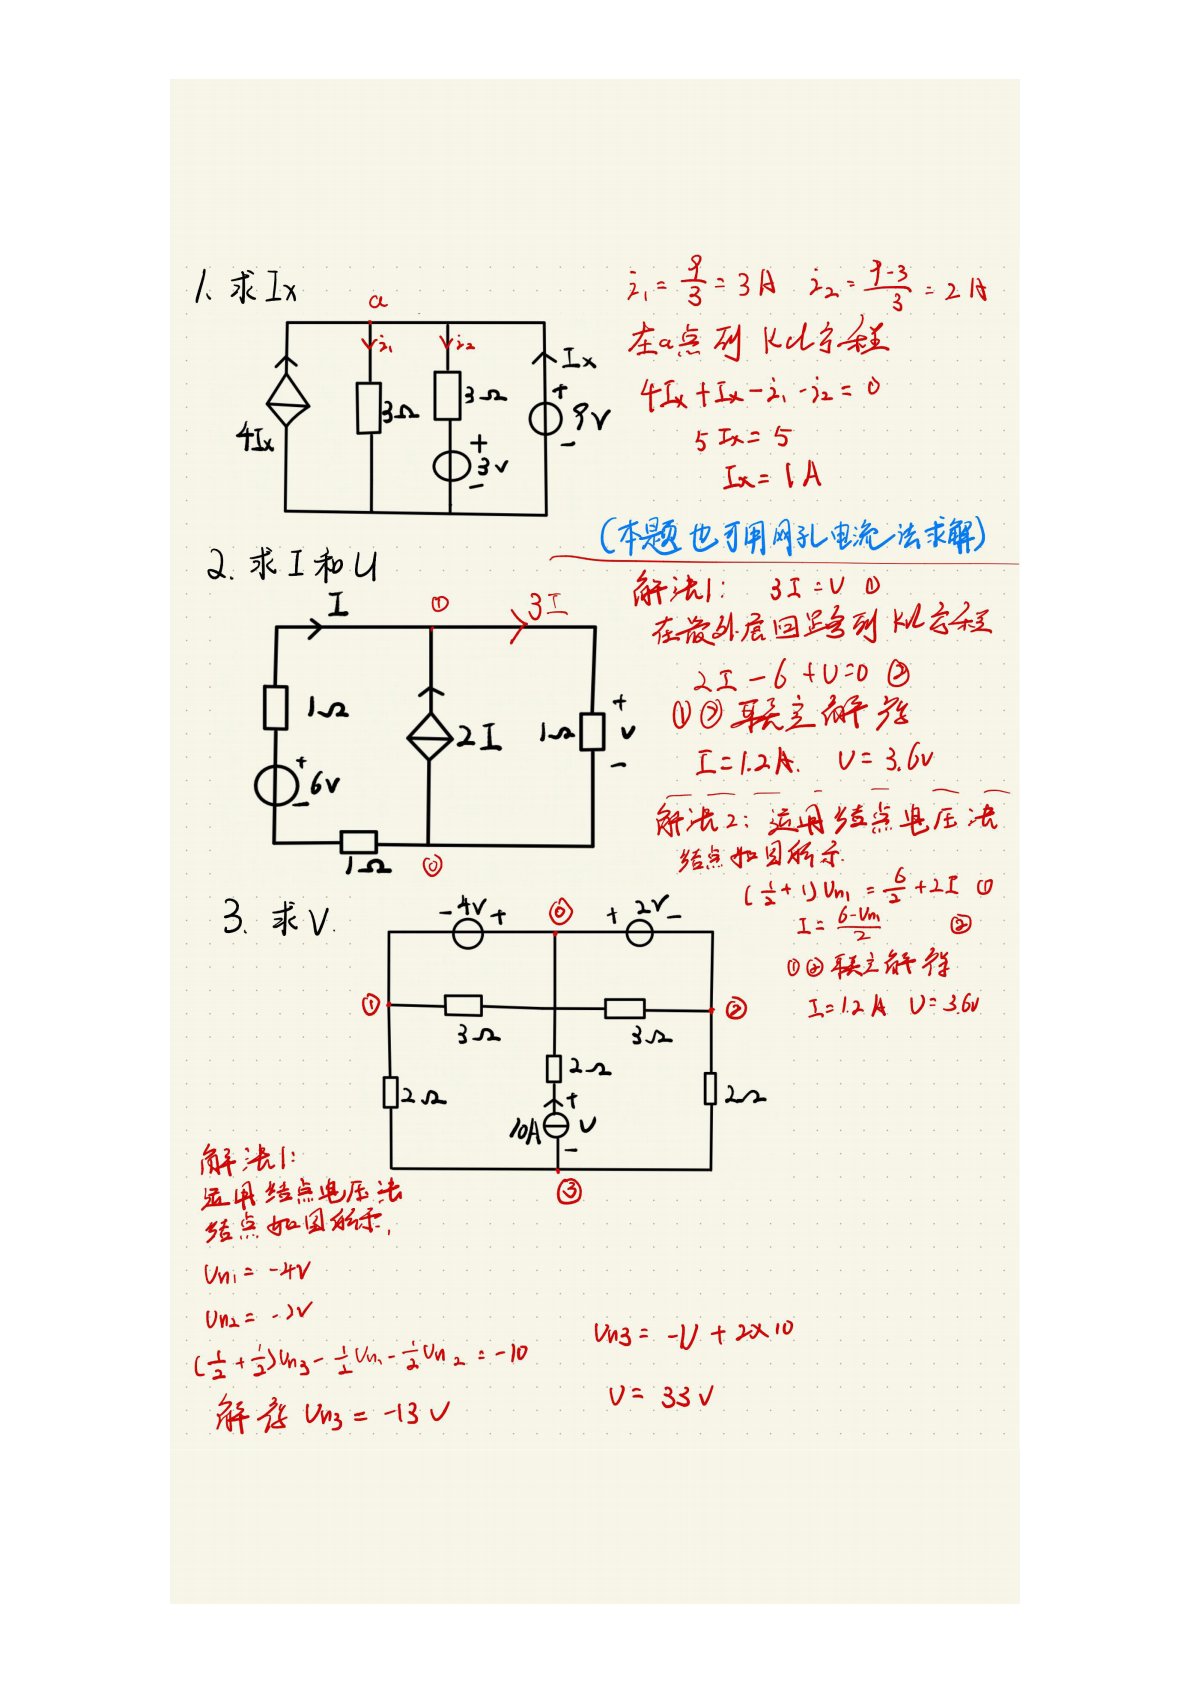 1. 求Ix
a
i₁
i₂
Ix
4Ix
3Ω
3Ω
+
3V
-
+
9V
-
i₁ = 9/3 = 3A i₂ = (9-3)/3 = 2A
在a点列KCL方程
4Ix + Ix - i₁ - i₂ = 0
5Ix = 5
Ix = 1A
(本题也可用网孔电流法求解)
2. 求I和U
I
①
3I
1Ω
+
6V
-
2I
1Ω
+
U
-
1Ω
⓪
解法1: 3I = U ①
在最外层回路列KVL方程
2I - 6 + U = 0 ②
①②联立解得
I = 1.2A. U = 3.6V
解法2: 运用结点电压法
结点如图所示.
(1/2 + 1)Un₁ = 6/2 + 2I ①
I = (6-Un₁)/2 ②
①②联立解得
I = 1.2A U = 3.6V
3. 求V.
- 4V +
⓪
+ 2V -
①
3Ω
3Ω
②
2Ω
2Ω
2Ω
10A
+
U
-
③
解法1:
运用结点电压法
结点如图所示,
Un₁ = -4V
Un₂ = -2V
(1/2 + 1/2)Un₃ - 1/2 Un₁ - 1/2 Un₂ = -10
解得 Un₃ = -13V
Un₃ = -U + 2×10
U = 33V